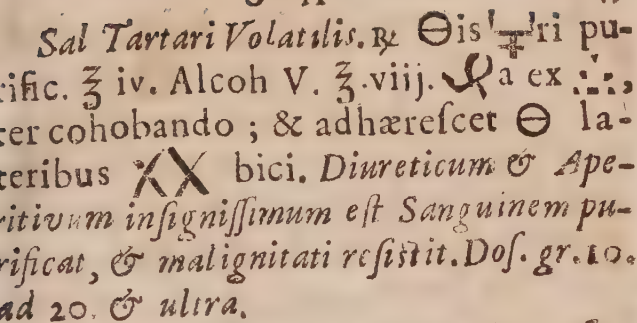 Sal Tartari Volatilis. ℞ 🜔is 🜿ri pu-
rific. ℥ iv. Alcoh V. ℥. viij. a ex ∴,
ter cohobando ; & adhærescet 🜔 la-
teribus XX bici. Diureticum & Ape-
ritivum insignissimum est Sanguinem pu-
rificat, & malignitati resistit. Dos. gr. 10.
ad 20. & ultra.